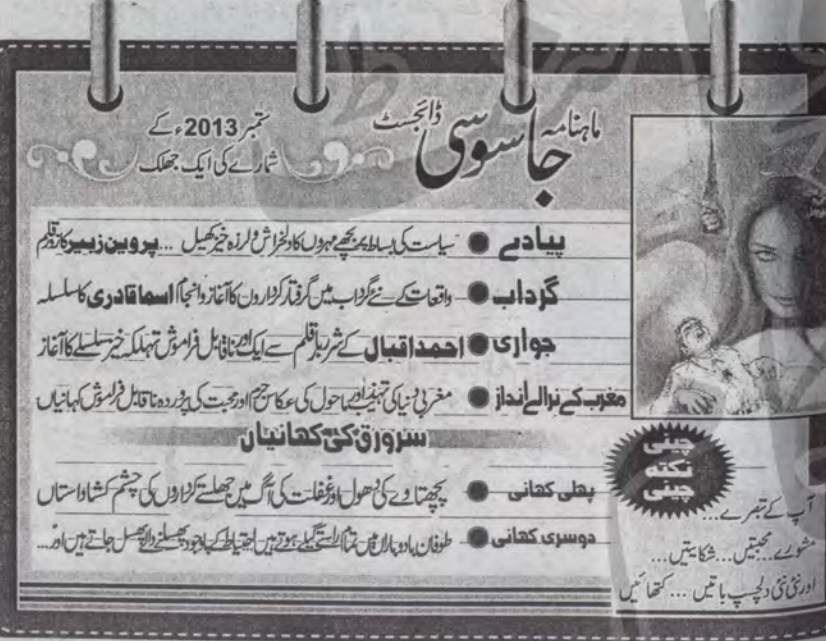 ماہنامہ جاسوسی ڈائجسٹ
ستمبر 2013ء کے
شمارے کی ایک جھلک
پیادے ● سیاست کی بساط پر بچھے مہروں کا دلخراش و لرزہ خیز کھیل ... پروین زبیر کا زور قلم
گرداب ● واقعات کے نئے گرداب میں گرفتار کرداروں کا آغاز و انجام اسما قادری کا سلسلہ
جواری ● احمد اقبال کے شرر بار قلم سے ایک اور ناقابل فراموش تہلکہ خیز سلسلے کا آغاز
مغرب کے نرالے انداز ● مغربی دنیا کی تہذیب اور ماحول کی عکاس جرم اور محبت کی پر درد ناقابل فراموش کہانیاں
سرورق کی کہانیاں
پہلی کہانی ● پچھتاوے کی دھول اور غفلت کی آگ میں جھلستے کرداروں کی چشم کشا داستاں
دوسری کہانی ● طوفان باد و باراں میں تمام راستے گیلے ہوتے ہیں احتیاط کے باوجود پھسلنے والے پھسل جاتے ہیں اور...
چینی
نکتہ
چینی
آپ کے تبصرے...
مشورے... محبتیں... شکایتیں...
اور نئی نئی دلچسپ باتیں ... کتھائیں